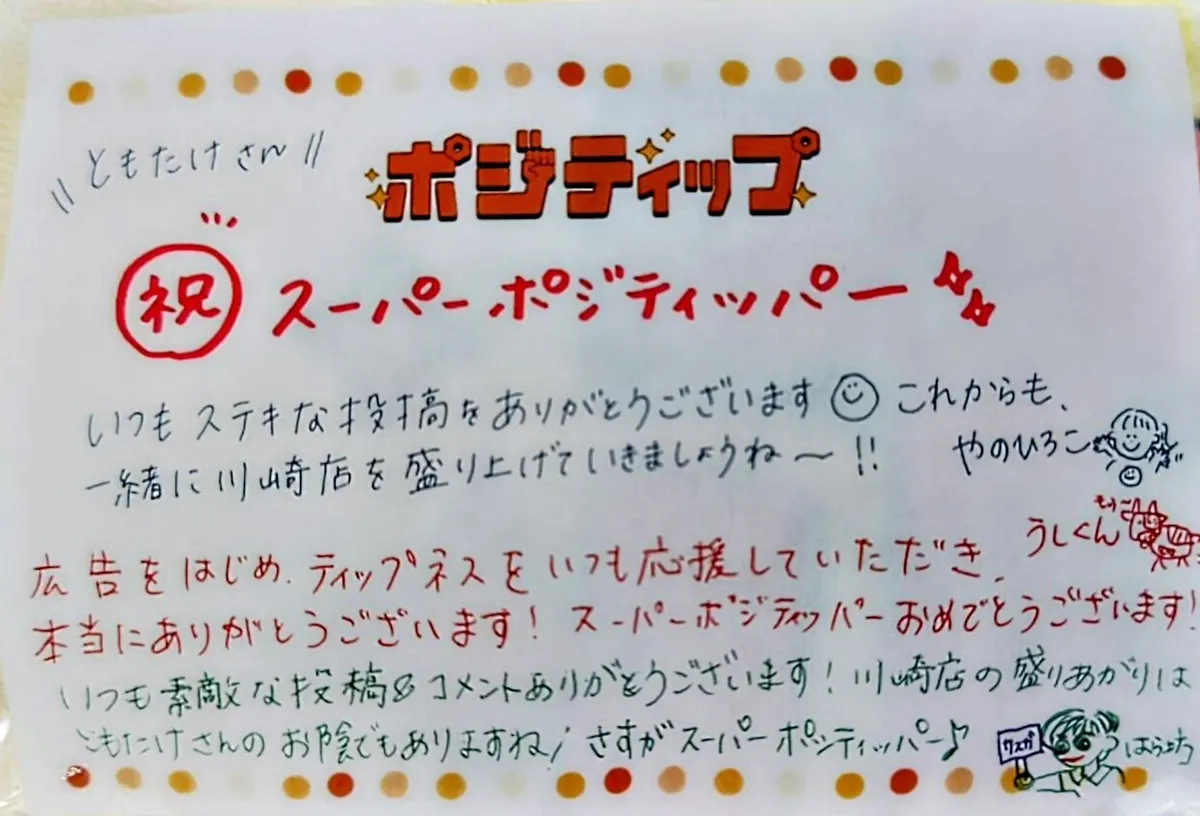 \\ ともたけさん //
ポジティップ
祝 スーパーポジティッパー
いつもステキな投稿をありがとうございます☺ これからも、
一緒に川崎店を盛り上げていきましょうね〜!!
やのひろこ
もぅ〜
うしくん
広告をはじめ、ティップネスをいつも応援していただき、
本当にありがとうございます! スーパーポジティッパーおめでとうございます!
いつも素敵な投稿&コメントありがとうございます! 川崎店の盛りあがりは
ともたけさんのお陰でもありますね! さすがスーパーポジティッパー♪